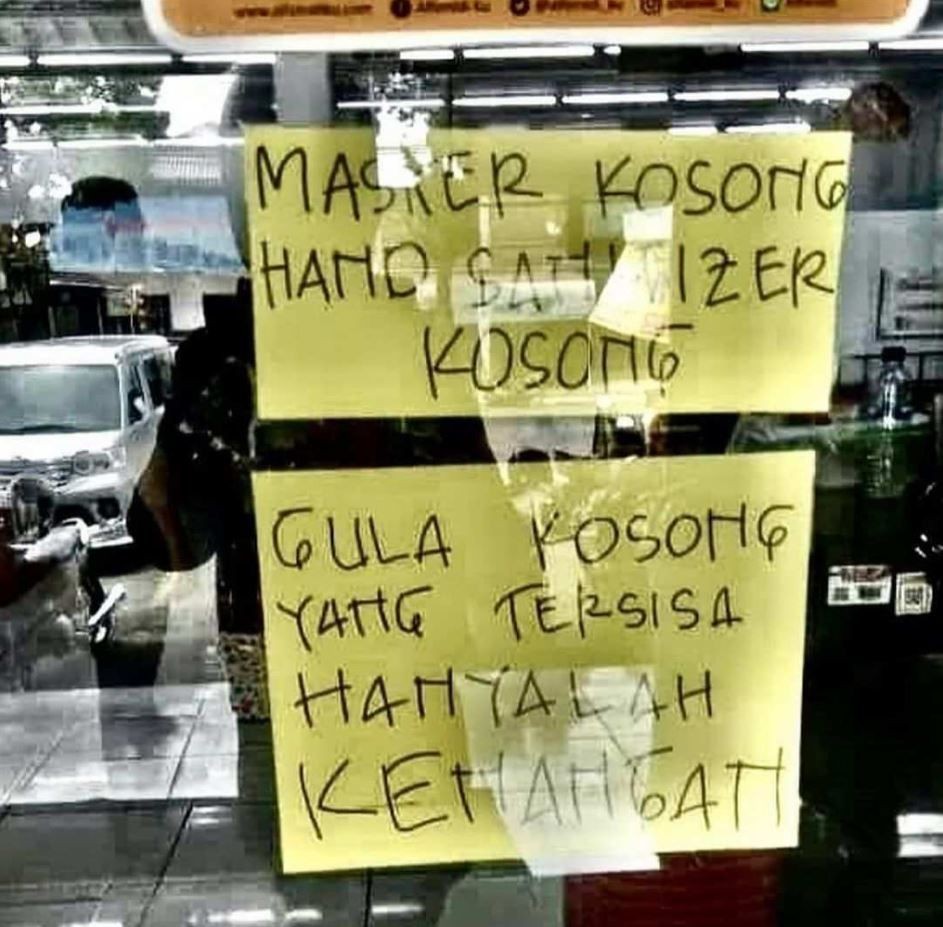 MASKER KOSONG
HAND SANITIZER
KOSONG
GULA KOSONG
YANG TERSISA
HANYALAH
KENANGAN